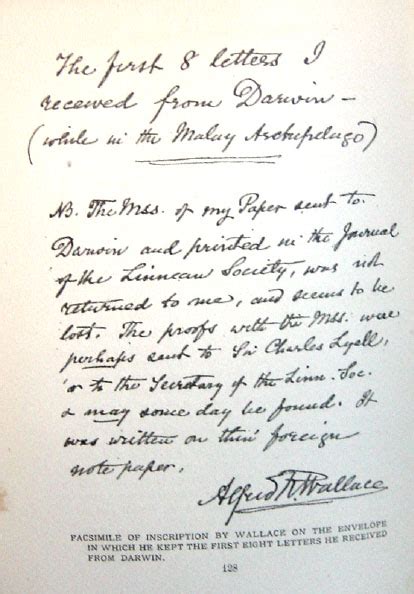 The first 8 letters I
received from Darwin –
(while in the Malay Archipelago)
NB. The Mss. of my Paper sent to
Darwin and printed in the Journal
of the Linnean Society, was not
returned to me, and seems to be
lost. The proofs with the Mss. were
perhaps sent to Sir Charles Lyell,
or to the Secretary of the Linn. Soc.
& may some day be found. It
was written on thin foreign
note paper.
Alfred R. Wallace
FACSIMILE OF INSCRIPTION BY WALLACE ON THE ENVELOPE
IN WHICH HE KEPT THE FIRST EIGHT LETTERS HE RECEIVED
FROM DARWIN.
128